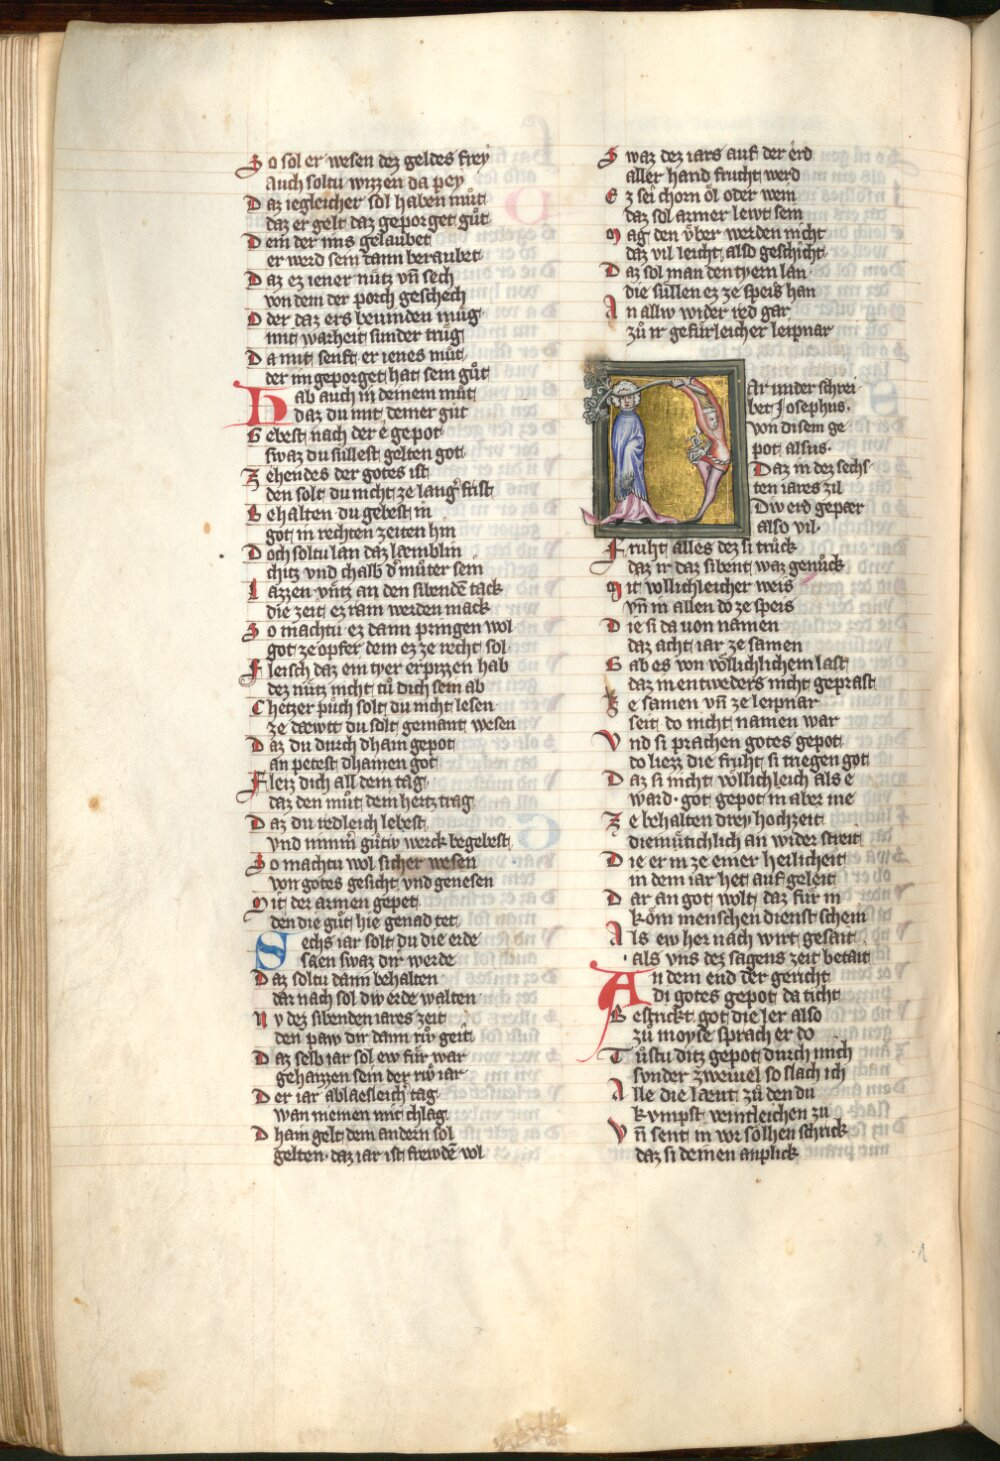 So sol er wesen dez geldes frey
auch soltu wizzen da pey
Daz iegleicher sol haben můt
daz er gelt daz geporget gůt
Dem der ims gelaubet
er werd sein dann beraubet
Daz ez iener nůtz vñ sech
von dem der porch geschech
Oder daz ers bewinden mug
mit warheit sunder trůg
Damit senft er ienes můt
der im geporget hat sein gůt
Hab auch in deinem můt
daz du mit deiner gůt
Gebest nach der e gepot
swaz du sullest gelten got
Zehendes der gotes ist
den solt du nicht ze lang frist
Behalten du gebest in
got in rechten zeiten hin
Doch soltu lan daz læmblin
chitz vnd chalb d͛ můter sein
Lazzen vntz an den sibendē tack
die zeit ez ram werden mack
So machtu ez dann pringen wol
got ze opfer dem ez ze recht sol
Fleisch daz ein tyer erpizzen hab
dez nůtz nicht tů dich sein ab
Chetzer půch solt du nicht lesen
ze dæwtt du solt gemant wesen
Daz du durch dhain gepot
an petest dhainen got
Fleiz dich all dein tag
daz den můt dein hertz trag
Daz du redleich lebest
vnd nimm͛ gůtiv werck begebest
So machtu wol sicher wesen
von gotes gesicht vnd genesen
Mit der armen gepet
den die gůt hie genad tet
Sechs iar solt du die erde
säen swaz dir werde
Daz soltu dann behalten
dar nach sol div erde walten
Nv dez sibenden iares zeit
den paw dir dann růw geit
Daz selb iar sol ew fůr war
gehaizzen sein der růw iar
Der iar ablaesleich tag
wan niemen mit chlag
Dhain gelt dem andern sol
gelten. daz iar ist frewdē vol
Swaz dez iars auf der erd
aller hand frucht werd
Ez sei chorn öl oder wein
daz sol armer lewt sein
Mag den v̊ber werden nicht
daz vil leicht also geschicht
Daz sol man den tyern lan
die sullen ez ze speis han
An allw wider red gar
zů ir gefůrleicher leipnar
Dar vnder schrei
bet Josephus.
von disem ge
pot alsus.
Daz in dez sechs
ten iares zil
Div erd gepær
also vil.
Fruht alles dez si trůck
daz ir daz sibent waz genůck
Mit vollichleicher weis
vñ in allen do ze speis
Die si da von namen
daz acht iar ze samen
Gab es von völlichlichem last
daz in entweders nicht geprast
Ze samen vñ ze leipnar
seit do nicht namen war
Vnd si prachen gotes gepot
do liezz die fruht si triegen got
Daz si nicht vollichleich als e
ward. got gepot in aber me
Ze behalten drey hochzeit
diemůtichlich an wider streit
Die er in ze einer heilicheit
in dem iar het auf geleit
Dar an got wolt daz fůr in
köm menschen dienst schein
Als ew her nach wirt gesait
als vns dez sagens zeit betait
An dem end der gericht
di gotes gepot da ticht
Bestrickt got die ler also
zů moyse sprach er do
Tůstu ditz gepot durch mich
sonder zweivel so slach ich
Alle die læut zů den du
kvmpst veintleichen zu
Vñ sent in vor solhen schrick
daz si deinen anplick